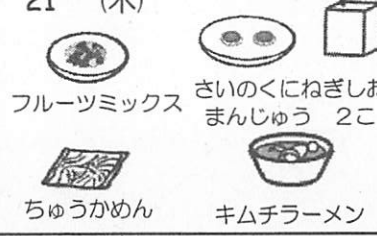 21 (木)
フルーツミックス
さいのくにねぎしお
まんじゅう 2こ
ちゅうかめん
キムチラーメン